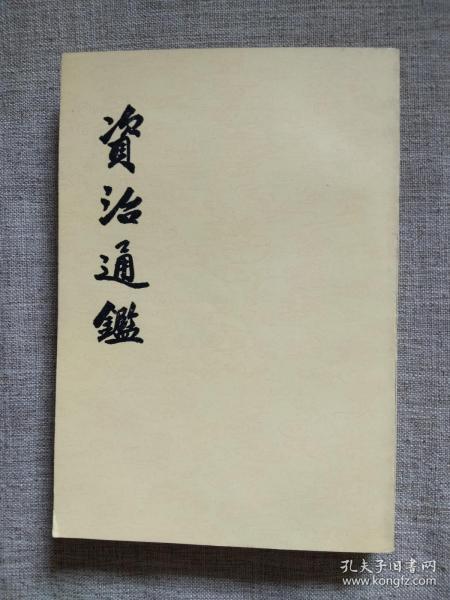 資治通鑑
孔夫子旧书网
www.kongfz.com